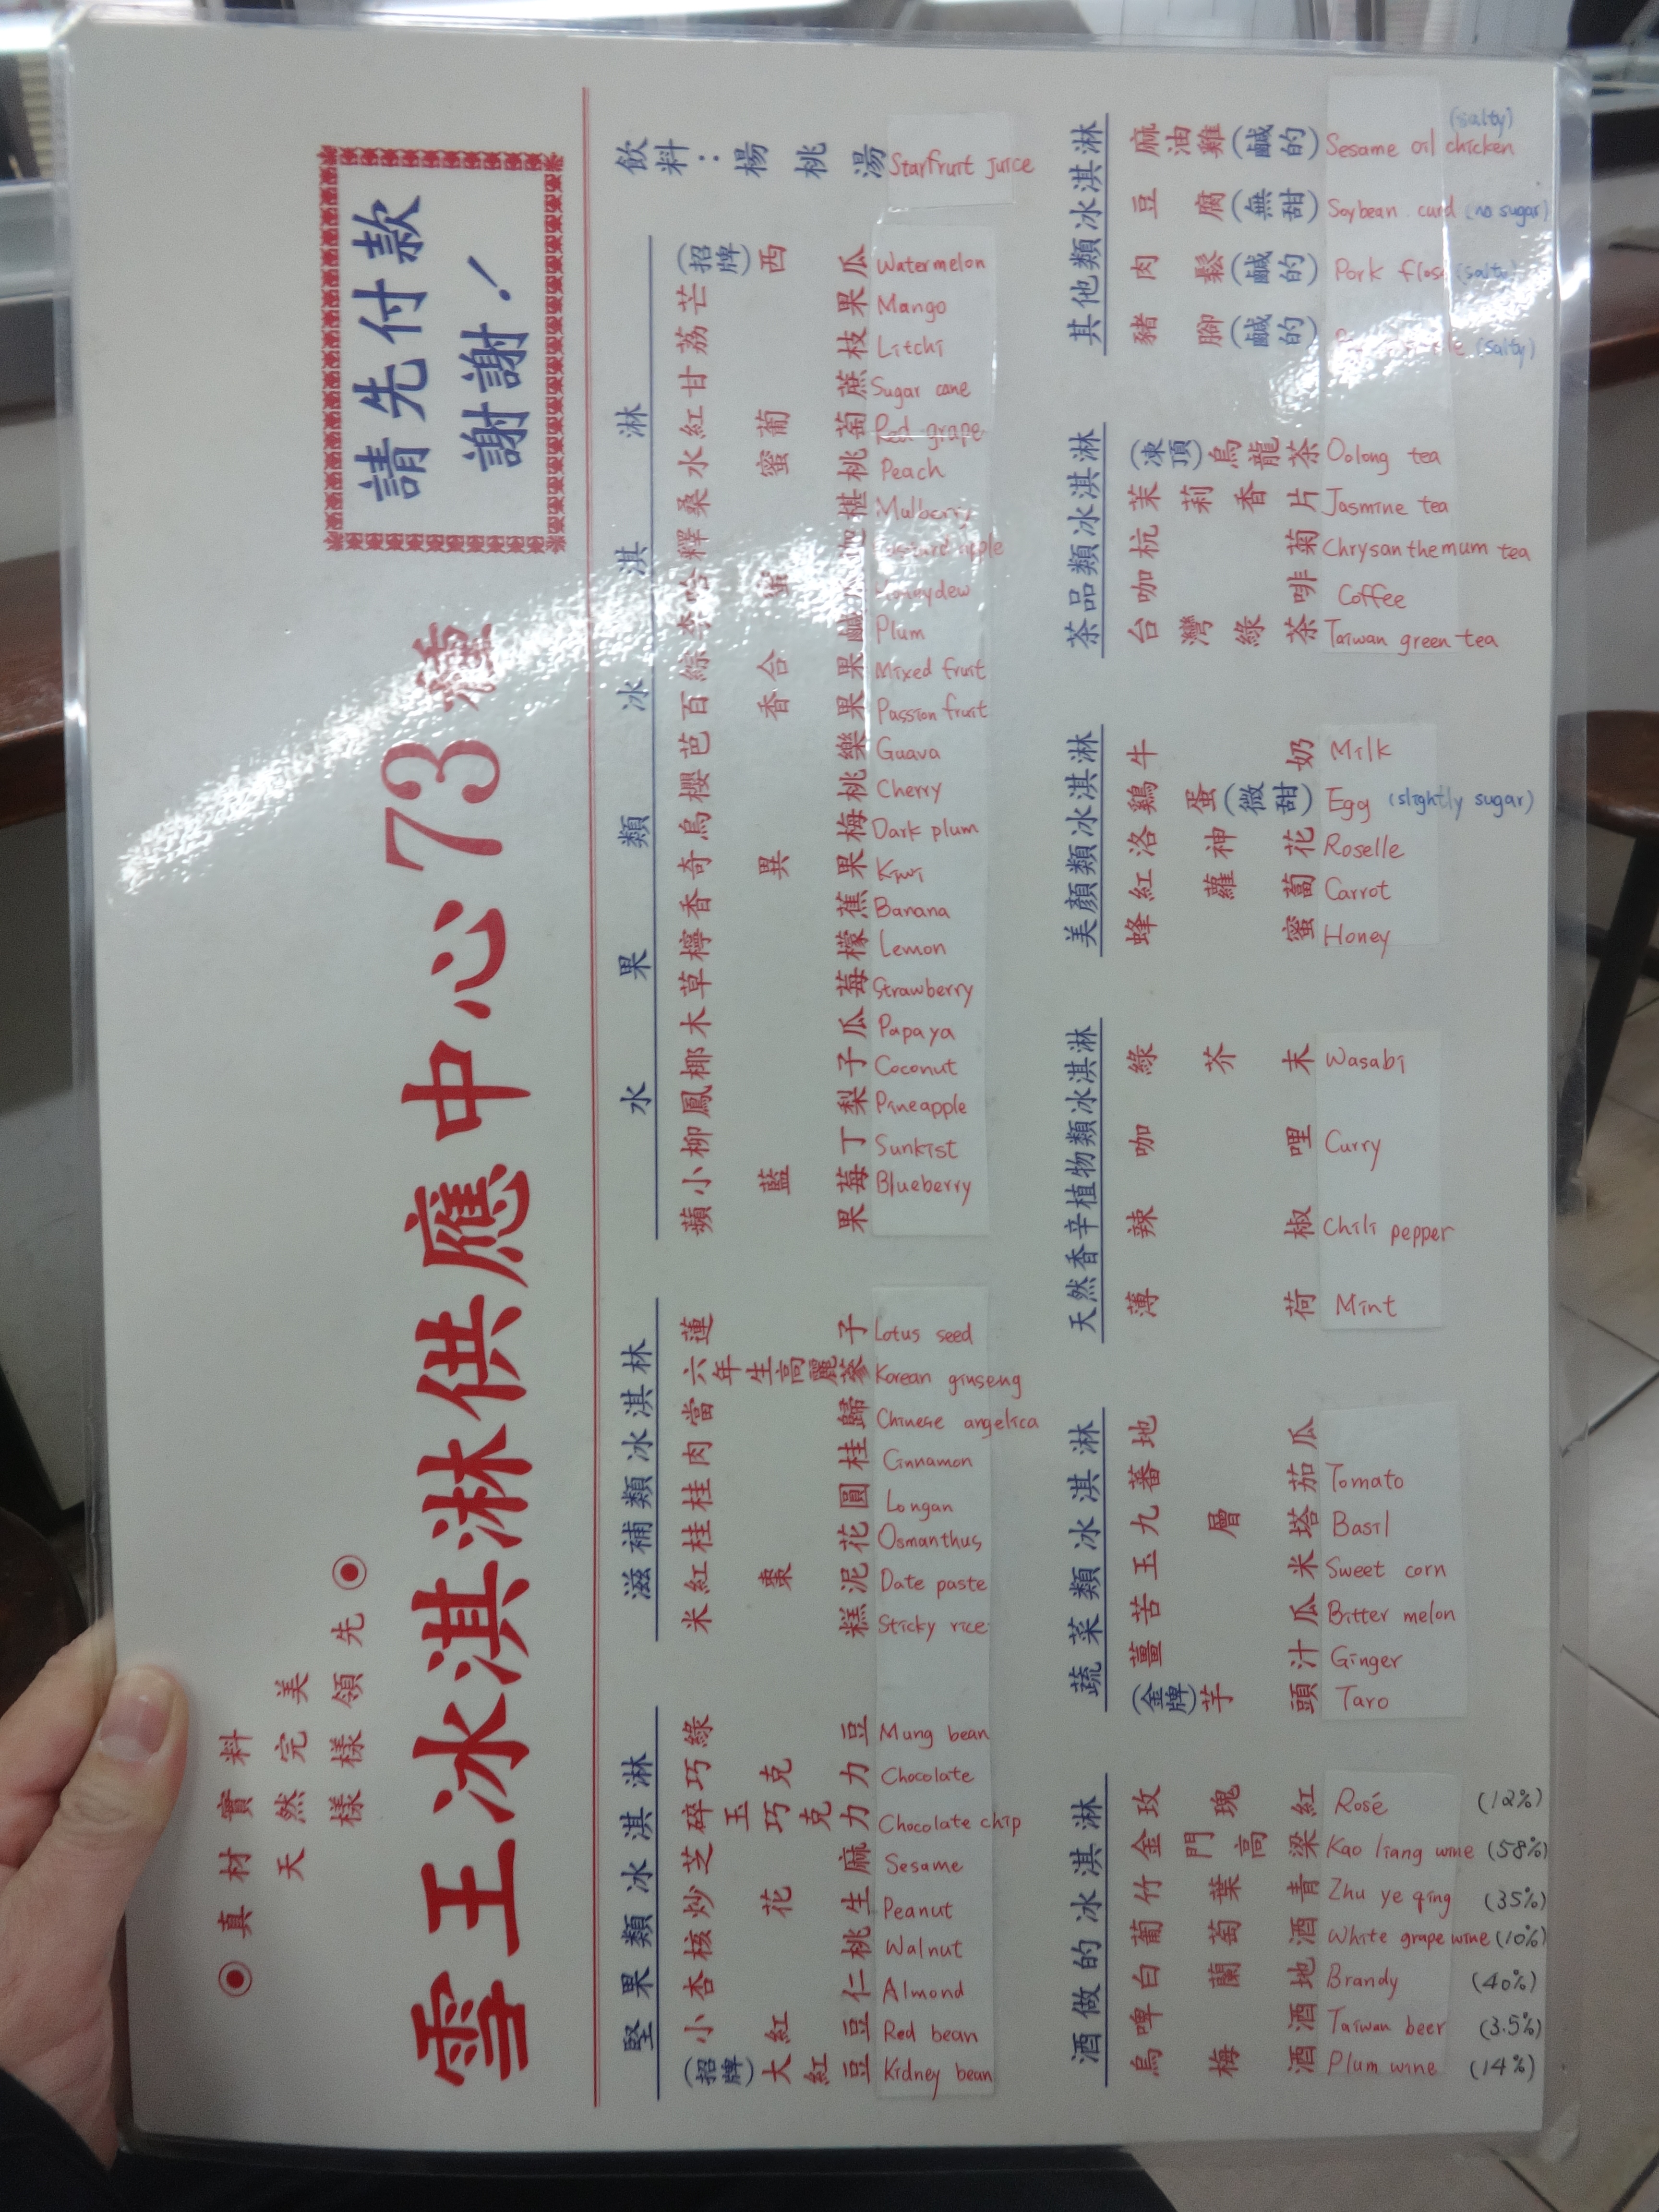 ◉真材實料
天然完美
樣樣領先◉
請先付款
謝謝！
雪王冰淇淋供應中心73種
飲料：楊桃湯 Starfruit juice
水果類冰淇淋
(招牌)西瓜 Watermelon
芒果 Mango
荔枝 Litchi
甘蔗 Sugar cane
紅葡萄 Red grape
水蜜桃 Peach
桑椹 Mulberry
釋迦 apple
哈蜜瓜 Honeydew
李鹹 Plum
綜合果 Mixed fruit
百香果 Passion fruit
芭樂 Guava
櫻桃 Cherry
烏梅 Dark plum
奇異果 Kiwi
香蕉 Banana
檸檬 Lemon
草莓 Strawberry
木瓜 Papaya
椰子 Coconut
鳳梨 Pineapple
柳丁 Sunkist
小藍莓 Blueberry
蘋果
滋補類冰淇林
蓮子 Lotus seed
六年生高麗蔘 Korean ginseng
當歸 Chinese angelica
肉桂 Cinnamon
桂圓 Longan
桂花 Osmanthus
紅棗泥 Date paste
米糕 Sticky rice
堅果類冰淇淋
綠豆 Mung bean
巧克力 Chocolate
碎玉巧克力 Chocolate chip
芝麻 Sesame
炒花生 Peanut
核桃 Walnut
杏仁 Almond
小紅豆 Red bean
(招牌)大紅豆 Kidney bean
其他類冰淇淋
麻油雞(鹹的) Sesame oil chicken (salty)
豆腐(無甜) Soybean curd (no sugar)
肉鬆(鹹的) Pork floss (salty)
豬腳(鹹的) (salty)
茶品類冰淇淋
(凍頂)烏龍茶 Oolong tea
茉莉香片 Jasmine tea
杭菊 Chrysanthemum tea
咖啡 Coffee
台灣綠茶 Taiwan green tea
美顏類冰淇淋
牛奶 Milk
鷄蛋(微甜) Egg (slightly sugar)
洛神花 Roselle
紅蘿蔔 Carrot
蜂蜜 Honey
天然香辛植物類冰淇淋
綠芥末 Wasabi
咖哩 Curry
辣椒 Chili pepper
薄荷 Mint
蔬菜類冰淇淋
地瓜
蕃茄 Tomato
九層塔 Basil
玉米 Sweet corn
苦瓜 Bitter melon
薑汁 Ginger
(金牌)芋頭 Taro
酒做的冰淇淋
玫瑰紅 Rosé (12%)
金門高梁 Kao liang wine (58%)
竹葉青 Zhu ye qing (35%)
葡萄酒 White grape wine (10%)
白蘭地 Brandy (40%)
啤酒 Taiwan beer (3.5%)
烏梅酒 Plum wine (14%)